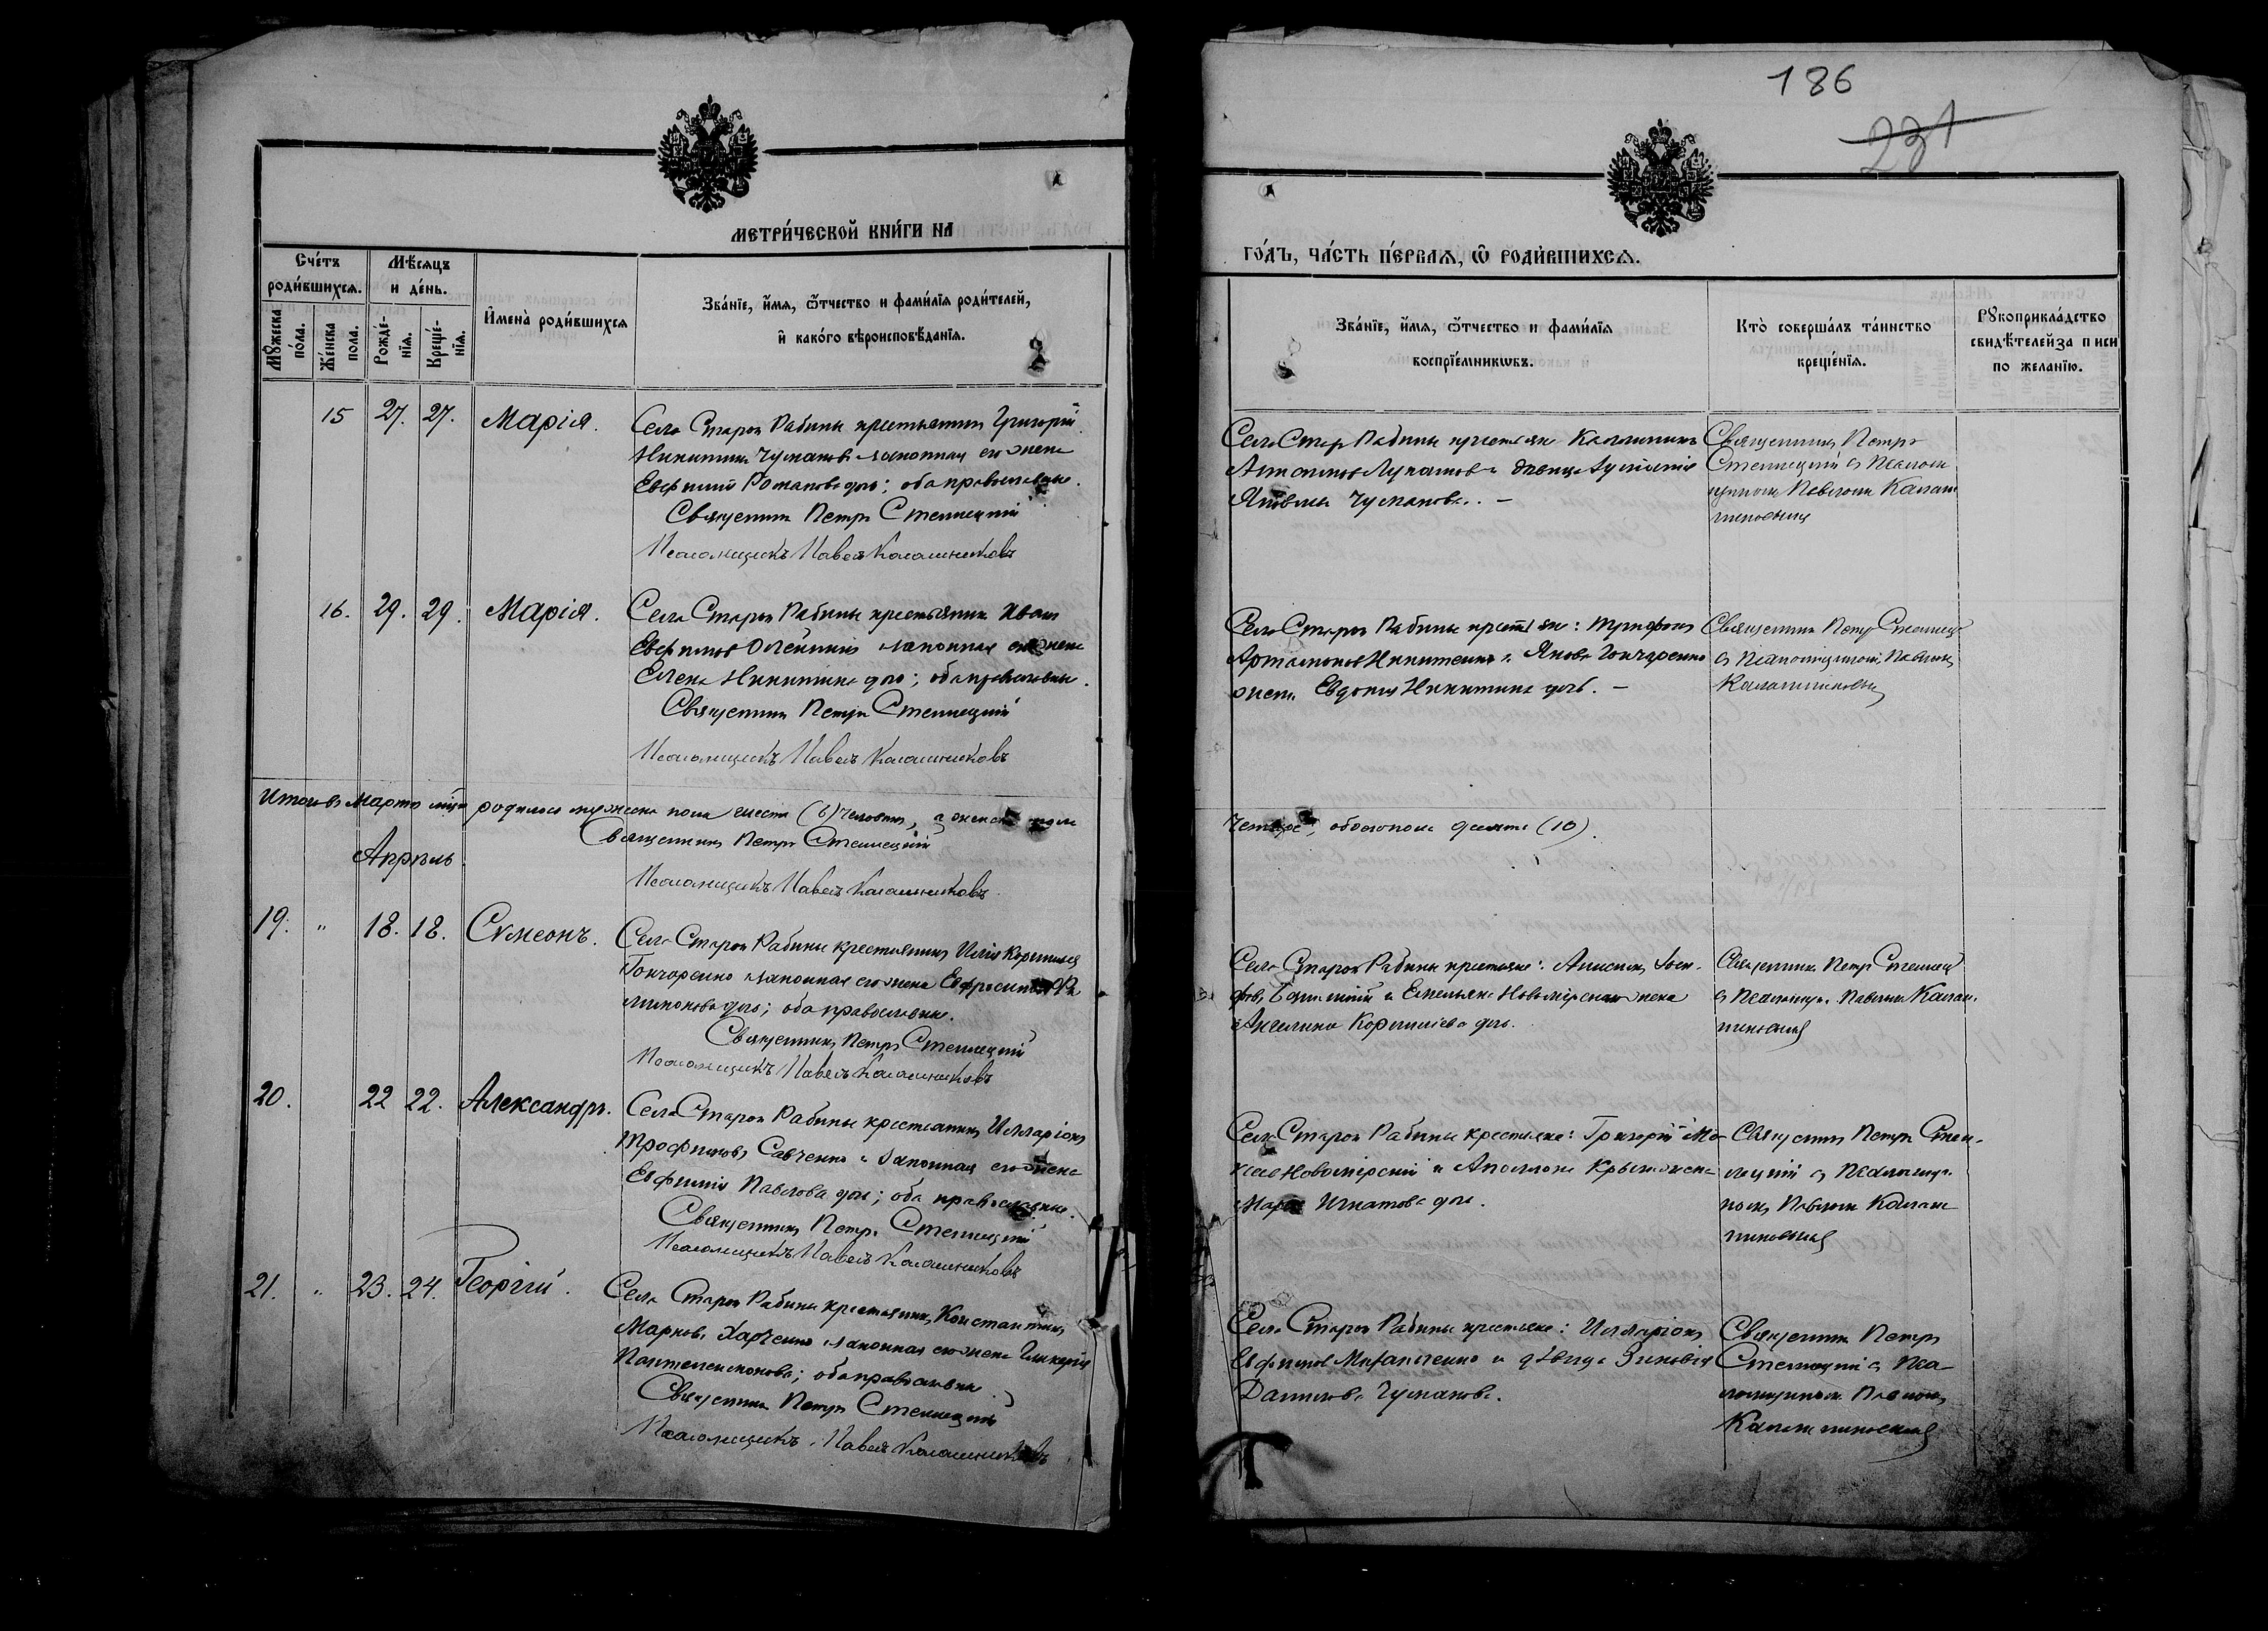 186
231
МЕТРИ́ЧЕСКОЙ КНИ́ГИ НА
ГО́ДЪ, ЧА́СТЬ ПЕ́РВАЯ, Ѿ РОДИ́ВШИХСЯ.
Сче́тъ
роди́вшихся.
Мѣ́сяцъ
и де́нь.
Мꙋ́жеска
по́ла.
Же́нска
пола.
Рожде́-
нїя.
Креще́-
нїя.
И҆мена̀ роди́вшихся
Зва́нїе, и҆́мя, ѻ҆́тчество и фами́лїя роди́телей,
и҆ како́го вѣроисповѣ́данїя.
Зва́нїе, и҆́мя, ѻ҆́тчество и фами́лїя
воспрїе́мникѡвъ.
Кто̀ соверша́лъ та́инство
креще́нїя.
Рꙋкоприкла́дство
свидѣ́телей записи
по жела́нїю.
15 27. 27. Марія.
Села Старой Рабины крестьянинъ Григорій
Никитинъ Чумаковъ и законная его жена
Евфимія Романова дочь; оба православные.
Священникъ Петръ
Псаломщикъ Павелъ Калашниковъ
Села Стар Рабины крестьяне
девица
Яковлева Чумакова. —
Священникъ Петръ
съ Псалом
щикомъ Павломъ Калаш
никовымъ
16. 29. 29. Марія.
Села Старой Рабины крестьянинъ Иванъ
Евфимовъ Олейникъ и законная его жена
Елена Никитина дочь; оба православные.
Священникъ Петръ
Псаломщикъ Павелъ Калашниковъ
Села Старой Рабины крестьяне: Трифонъ
Артамоновъ Никитенко и Якова Гончаренко
жена Евдокия Никитина дочь. —
Священникъ Петръ
съ Псаломщикомъ Павломъ
Калашниковымъ
Итого въ Марте м-це родилось мужеска пола шесть (6) человекъ, а женска пола
четыре, обоего пола десять (10).
Священникъ Петръ
Псаломщикъ Павелъ Калашниковъ
Апрѣль
19. " 18. 18. Сѵмеонъ.
Села Старой Рабины крестьянинъ Илія Корнилиевъ
Гончаренко и законная его жена Евфросинія Фи
лимонова дочь; оба православные.
Священникъ Петръ
Псаломщикъ Павелъ Калашниковъ
Села Старой Рабины крестьяне:
и Емельяна Новомірскаго жена
Ангелина Корнилиева дочь.
Священникъ Петръ
съ Псаломщик. Павломъ Калаш
никовымъ
20. 22 22. Александръ.
Села Старой Рабины крестьянинъ Илларіонъ
Трофимовъ Савченко и законная его жена
Евфимія Павлова дочь; оба православные.
Священникъ Петръ
Псаломщикъ Павелъ Калашниковъ
Села Старой Рабины крестьяне: Григорій
Новомірскій и жена
Марія Игнатова дочь.
Священникъ Петръ
съ Псаломщи
комъ Павломъ Калаш
никовымъ
21. " 23. 24. Георгій.
Села Старой Рабины крестьянинъ Константинъ
Марковъ Харченко и законная его жена Гликерія
Пантелеимонова; оба православные.
Священникъ Петръ
Псаломщикъ Павелъ Калашниковъ
Села Старой Рабины крестьяне: Илларіонъ
Евфимовъ и девица Зиновія
Данилова Чумакова.
Священникъ Петръ
съ Пса-
ломщикомъ Павломъ
Калашниковымъ